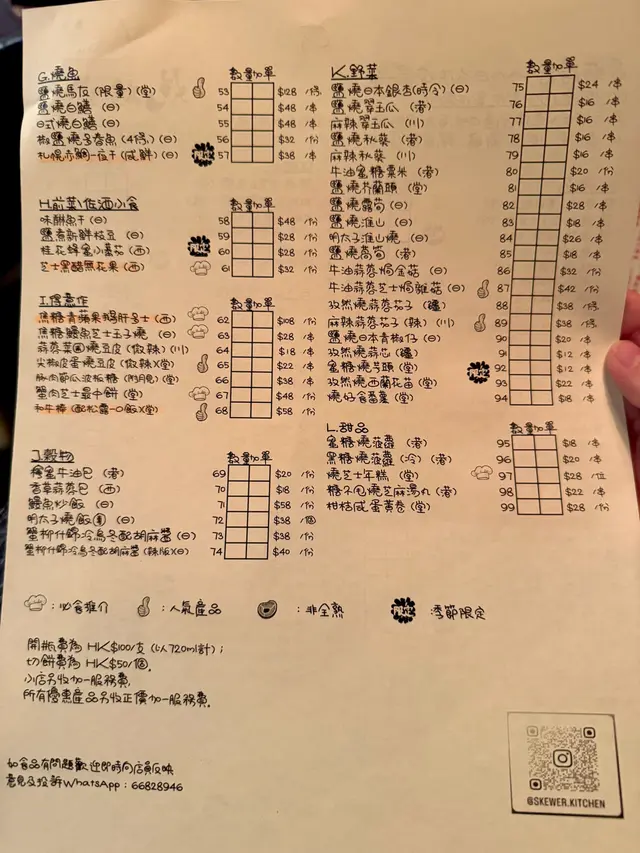 G.燒魚 數量加單
鹽燒馬友 (限量) (堂) 53 $128 /條
鹽燒白鱔 (日) 54 $48 /串
日式燒白鱔 (日) 55 $48 /串
椒鹽燒多春魚 (4條) (日) 56 $32 /份
札幌赤鯛一夜干 (咸鮮) (日) 57 $38 /串
H.前菜\佐酒小食
味醂魚干 (日) 58 $48 /份
鹽煮新鮮枝豆 (日) 59 $28 /份
桂花蜂蜜小番茄 (西) 60 $28 /份
芝士黑醋無花果 (西) 61 $32 /份
I.得意作
焦糖青蘋果鵝肝多士 (西) 62 $108 /份
焦糖鰻魚芝士玉子燒 (日) 63 $28 /份
蒜蓉菜圃燒豆皮 (微辣) (川) 64 $18 /串
尖椒皮蛋燒豆皮 (微辣)(堂) 65 $22 /串
豚肉節瓜波板糖 (堂) 66 $38 /串
蟹肉芝士最中餅 (堂) 67 $48 /份
和牛棒 (配松露一口飯)(堂) 68 $58 /份
J.穀物 數量加單
檜蜜牛油包 (港) 69 $20 /份
香草蒜蓉包 (西) 70 $18 /份
鰻魚炒飯 (日) 71 $58 /份
明太子燒飯團 (日) 72 $38 /個
蟹柳什錦冷烏冬配胡麻醬 (日) 73 $38 /份
蟹柳什錦冷烏冬配胡麻醬 (辣版)(日) 74 $40 /份
K.野菜 數量加單
鹽燒日本銀杏(時令) (日) 75 $24 /串
鹽燒翠玉瓜 (港) 76 $16 /串
麻辣翠玉瓜 (川) 77 $16 /串
鹽燒秋葵 (港) 78 $16 /串
麻辣秋葵 (川) 79 $16 /串
牛油蜜糖粟米 (港) 80 $20 /份
鹽燒芥蘭頭 (堂) 81 $16 /串
鹽燒露筍 (日) 82 $28 /串
鹽燒淮山 (日) 83 $18 /串
明太子淮山燒 (日) 84 $26 /串
鹽燒萵筍 (港) 85 $18 /串
牛油蒜蓉焗金菇 (日) 86 $32 /份
牛油蒜蓉芝士焗雜菇 (日) 87 $42 /份
孜然燒蒜蓉茄子 (疆) 88 $38 /條
麻辣蒜蓉茄子 (辣) (川) 89 $38 /條
鹽燒日本青椒仔 (日) 90 $18 /串
孜然燒蒜芯 (疆) 91 $12 /串
蜜糖燒芋頭 (堂) 92 $12 /串
孜然燒西蘭花苗 (堂) 93 $22 /串
燒好食番薯 (堂) 94 $18 /串
L.甜品 數量加單
蜜糖燒菠蘿 (港) 95 $18 /串
黑糖燒菠蘿 (冷) (港) 96 $20 /串
燒芝士年糕 (堂) 97 $28 /位
糖不甩燒芝麻湯丸 (港) 98 $22 /串
柑桔咸蛋黃卷 (堂) 99 $28 /份
：必食推介 ：人氣產品 ：非全熟 ：季節限定
開瓶費為 HK$100/支 (以720ml計)；
切餅費為 HK$50/個。
小店另收加一服務費。
所有優惠產品另收正價加一服務費。
如食品有問題歡迎即時向店員反映
意見及投訴WhatsApp：66828946
@SKEWER.KITCHEN